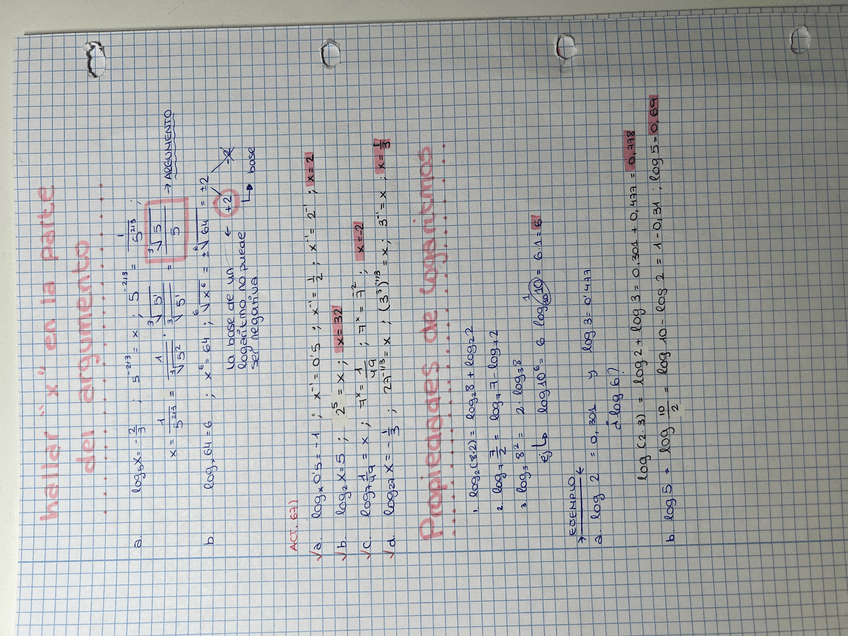 hallar "x" en la parte
del argumento
a. log₅x = -2/3 ; 5^-2/3 = x ; 5^-2/3 = 1/5^2/3 ;
x = 1/5^2/3 = 1/∛5² · ∛5/∛5 = ∛5/5 → ARGUMENTO
b. logₓ 64 = 6 ; x⁶ = 64 ; ⁶√x⁶ = ± ⁶√64 = ±2
+2 -2
la base de un ←
logaritmo no puede ↳ base
ser negativa
ACT. 67)
√a. logₓ 0'5 = -1 ; x⁻¹ = 0'5 ; x⁻¹ = 1/2 ; x⁻¹ = 2⁻¹ ; x = 2
√b. log₂ x = 5 ; 2⁵ = x ; x = 32
√c. log₇ 1/49 = x ; 7ˣ = 1/49 ; 7ˣ = 7⁻² ; x = -2
√d. log₂₇ x = -1/3 ; 27^-1/3 = x ; (3³)^-1/3 = x ; 3⁻¹ = x ; x = 1/3
Propiedades de logaritmos
1. log₂ (8·2) = log₂ 8 + log₂ 2
2. log₇ 7/2 = log₇ 7 - log₇ 2
3. log₃ 8² = 2 · log₃ 8
ej ↳ log 10⁶ = 6 log₁₀ 10 = 6·1 = 6
1
→ EJEMPLO ←
a. log 2 = 0,301 y log 3 = 0'477
¿log 6?
log (2·3) = log 2 + log 3 = 0,301 + 0,477 = 0,778
b. log 5 = log 10/2 = log 10 - log 2 = 1 - 0,31 ; log 5 = 0,69